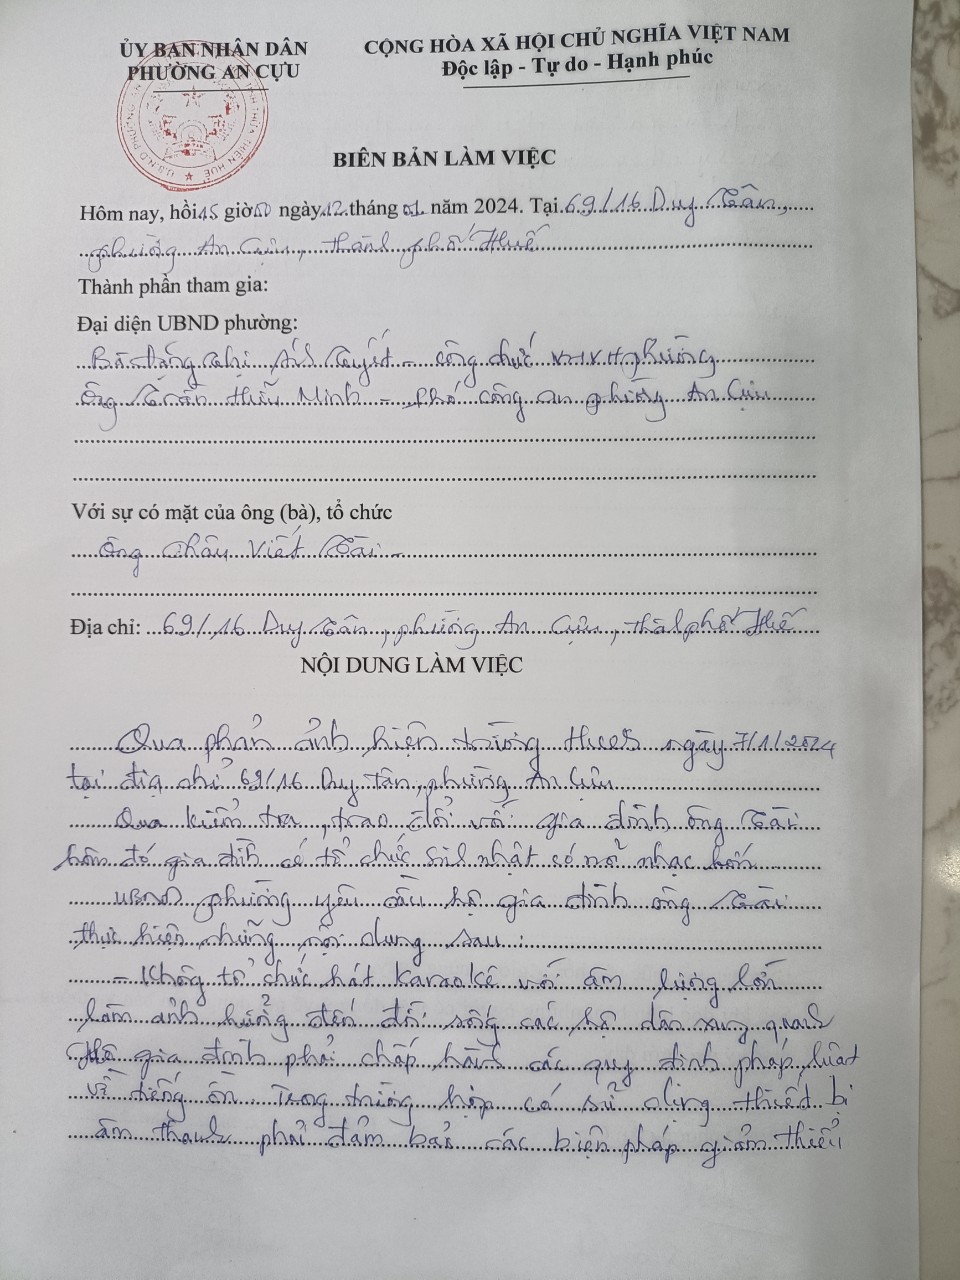 ỦY BAN NHÂN DÂN
PHƯỜNG AN CỰU
CỘNG HÒA XÃ HỘI CHỦ NGHĨA VIỆT NAM
Độc lập - Tự do - Hạnh phúc
BIÊN BẢN LÀM VIỆC
Hôm nay, hồi 15 giờ 50 ngày 12 tháng 01 năm 2024. Tại 69/16 Duy Tân,
phường An Cựu, thành phố Huế
Thành phần tham gia:
Đại diện UBND phường:
Bà Đặng Thị Ánh Tuyết - công chức VHXH phường
Ông Trần Hữu Minh - Phó công an phường An Cựu
Với sự có mặt của ông (bà), tổ chức
Ông Châu Viết Tài -
Địa chỉ: 69/16 Duy Tân, phường An Cựu, thành phố Huế
NỘI DUNG LÀM VIỆC
Qua phản ảnh hiện trường HueS ngày 7/1/2024
tại địa chỉ 69/16 Duy Tân, phường An Cựu
Qua kiểm tra, trao đổi với gia đình ông Tài
hôm đó gia đình có tổ chức sinh nhật có mở nhạc lớn
UBND phường yêu cầu hộ gia đình ông Tài
thực hiện những nội dung sau:
- Không tổ chức hát karaokê với âm lượng lớn
làm ảnh hưởng đến đời sống các hộ dân xung quanh
Hộ gia đình phải chấp hành các quy định pháp luật
về tiếng ồn. Trong trường hợp có sử dụng thiết bị
âm thanh phải đảm bảo các biện pháp giảm thiểu